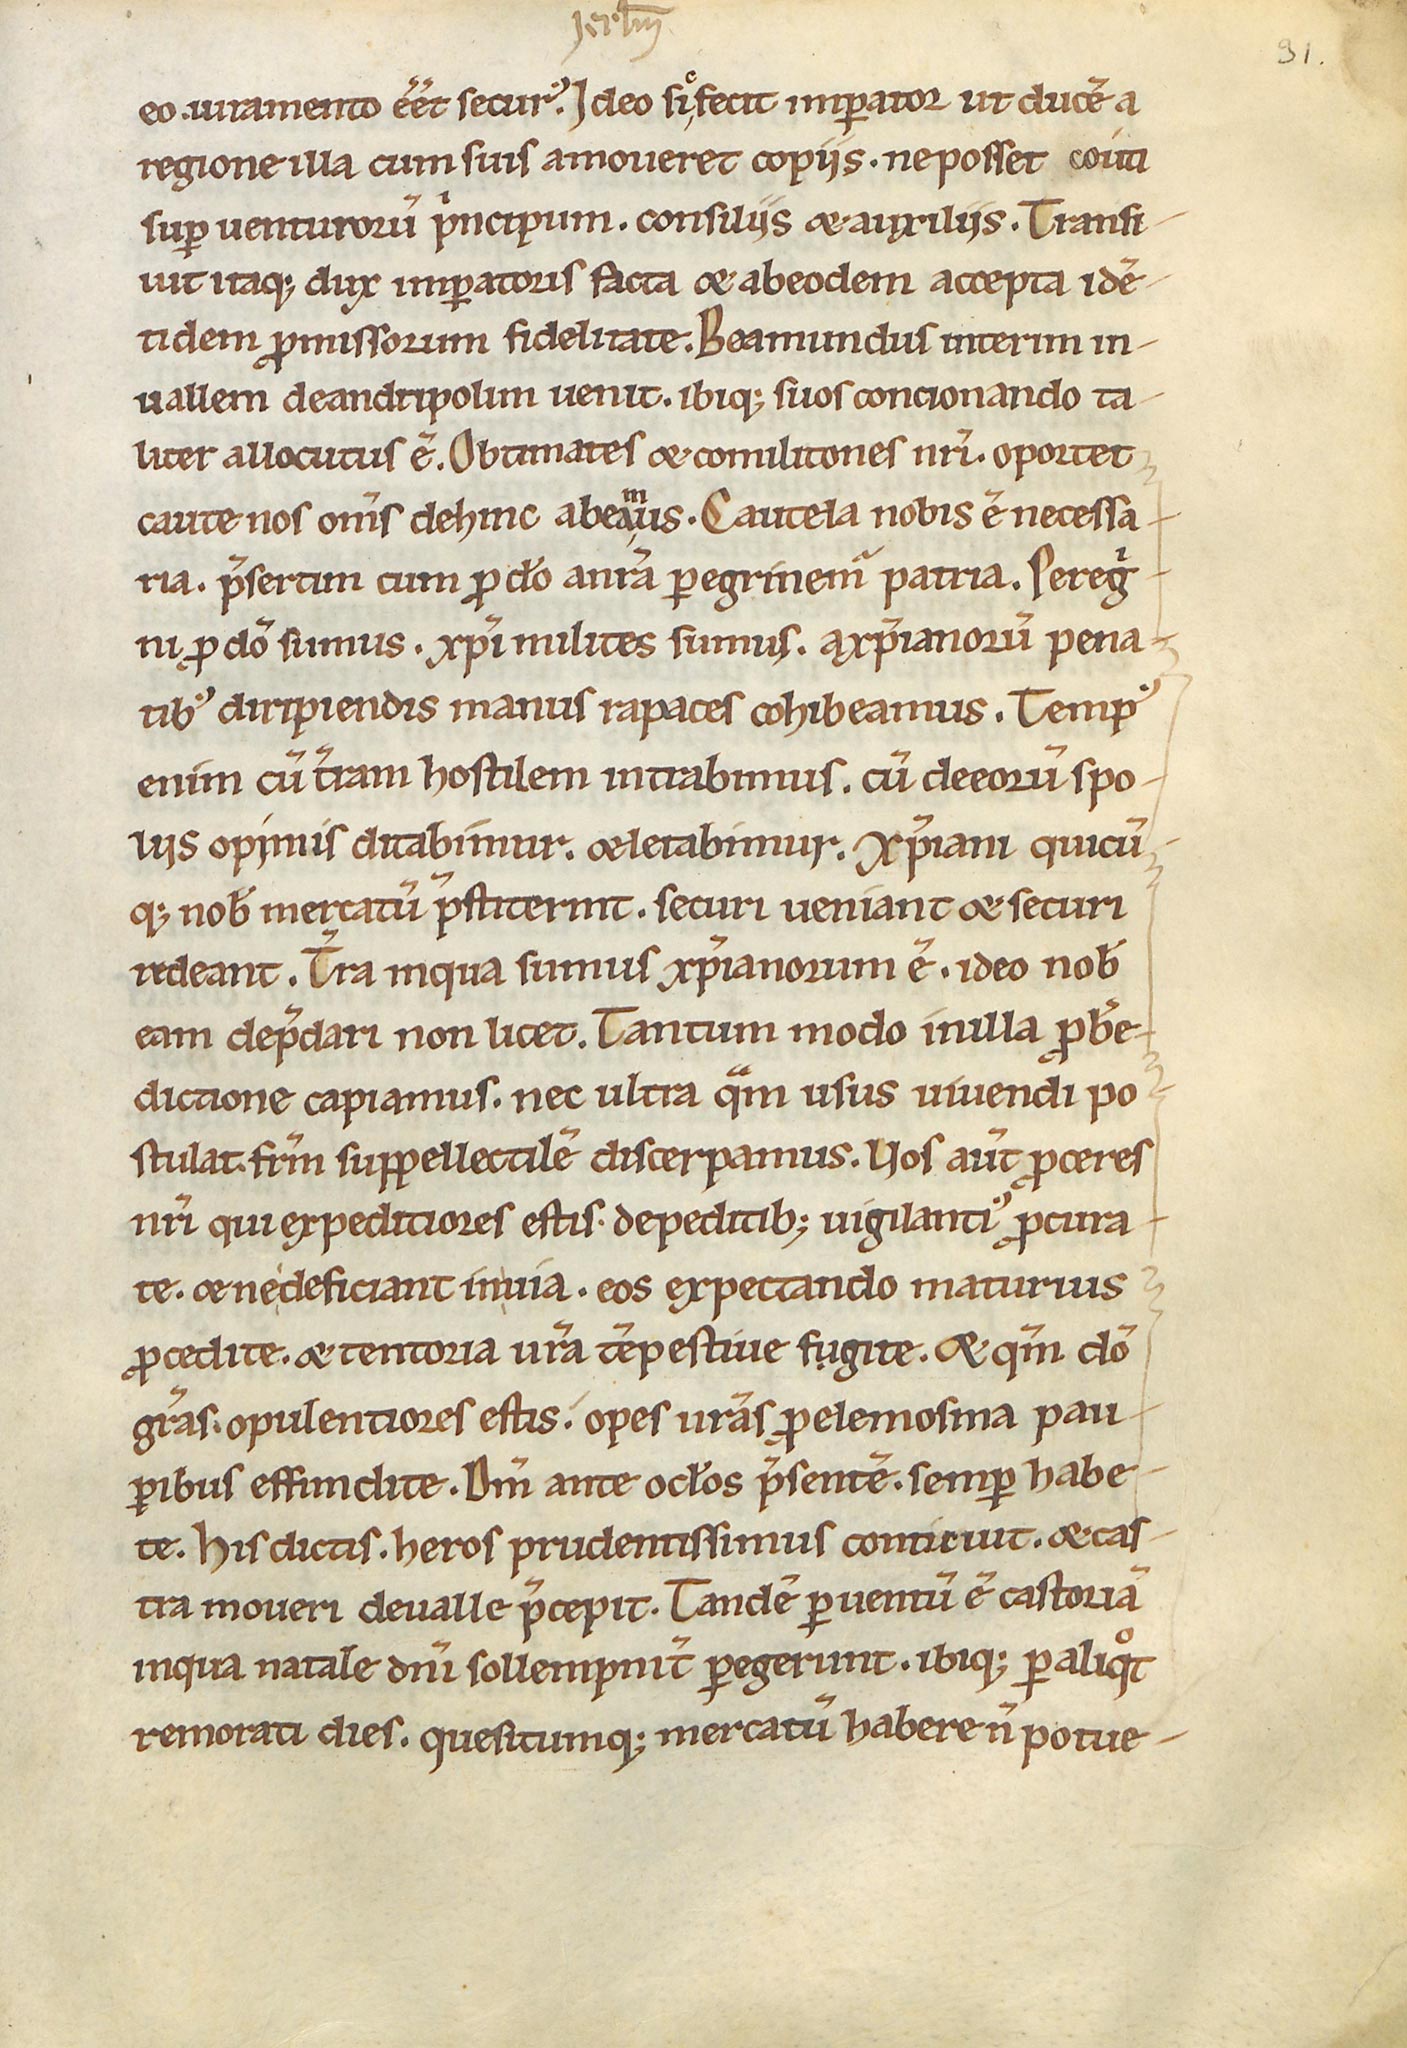 Ierlm̄
31.
eo. iuramento ēēt secur᾽. Ideo siͨ fecit imꝑator ut ducē a
regione illa cum suis amoueret copiis. ne posset coiuti
suꝑ uenturorū pͥncipum. consiliis & auxiliis. Transi-
uit itaq; dux imꝑatoris facta & ab eodem accepta idē-
tidem ꝓmissorum fidelitate. Beamundus interim in-
uallem de andripolim uenit. ibiq; suos concionando ta-
liter allocutus ē. Obtimates & comilitones nr̄i. oportet
caute nos om̄s dehinc abeamus. Cautela nobis ē necessa-
ria. p̄sertim cum ꝓ dō a nr̄a ꝑegrinem᾽ patria. Peregͥ-
ni ꝓ dō sumus. xp̄i milites sumus. a xp̄ianorū pena-
tib᾽ diripiendis manus rapaces cohibeamus. Temp᾽
enim cū tr̄am hostilem intrabimus. cū de eorū spo-
liis opimis ditabimur. & letabimur. Xp̄iani quicū
q; nob̄ mercatū p̄stiterint. securi ueniant & securi
redeant. Tr̄a in qua sumus xp̄ianorum ē. ideo nob̄
eam dep̄dari non licet. Tantum modo in illa ꝓ bn̄e-
dictione capiamus. nec ultra qᵃm usus uiuendi po
stulat. fr̄m suppellectilē discerpamus. Uos aūt ꝓceres
nr̄i qui expeditiores estis. de peditib; uigilanti᾽ ꝓcura-
te. & ne deficiant in uia. eos expectando maturius
ꝓcedite. & tentoria ur̄a tēpestiue fugite. & qm̄ dō
gr̄as. opulentiores estis. opes ur̄as ꝓ elemosina pau-
ꝑibus effundite. Dm̄ ante oclōs p̄sentē. semꝑ habe-
te. His dictis. heros prudentissimus conticuit. & cas-
tra moueri de ualle p̄cepit. Tandē ꝑuentū ē castoriā
in qua natale dn̄i sollempnit̄ ꝑegerunt. ibiq; ꝑ aliqͦt
remorati dies. quesitumq; mercatū habere n̄ potue-